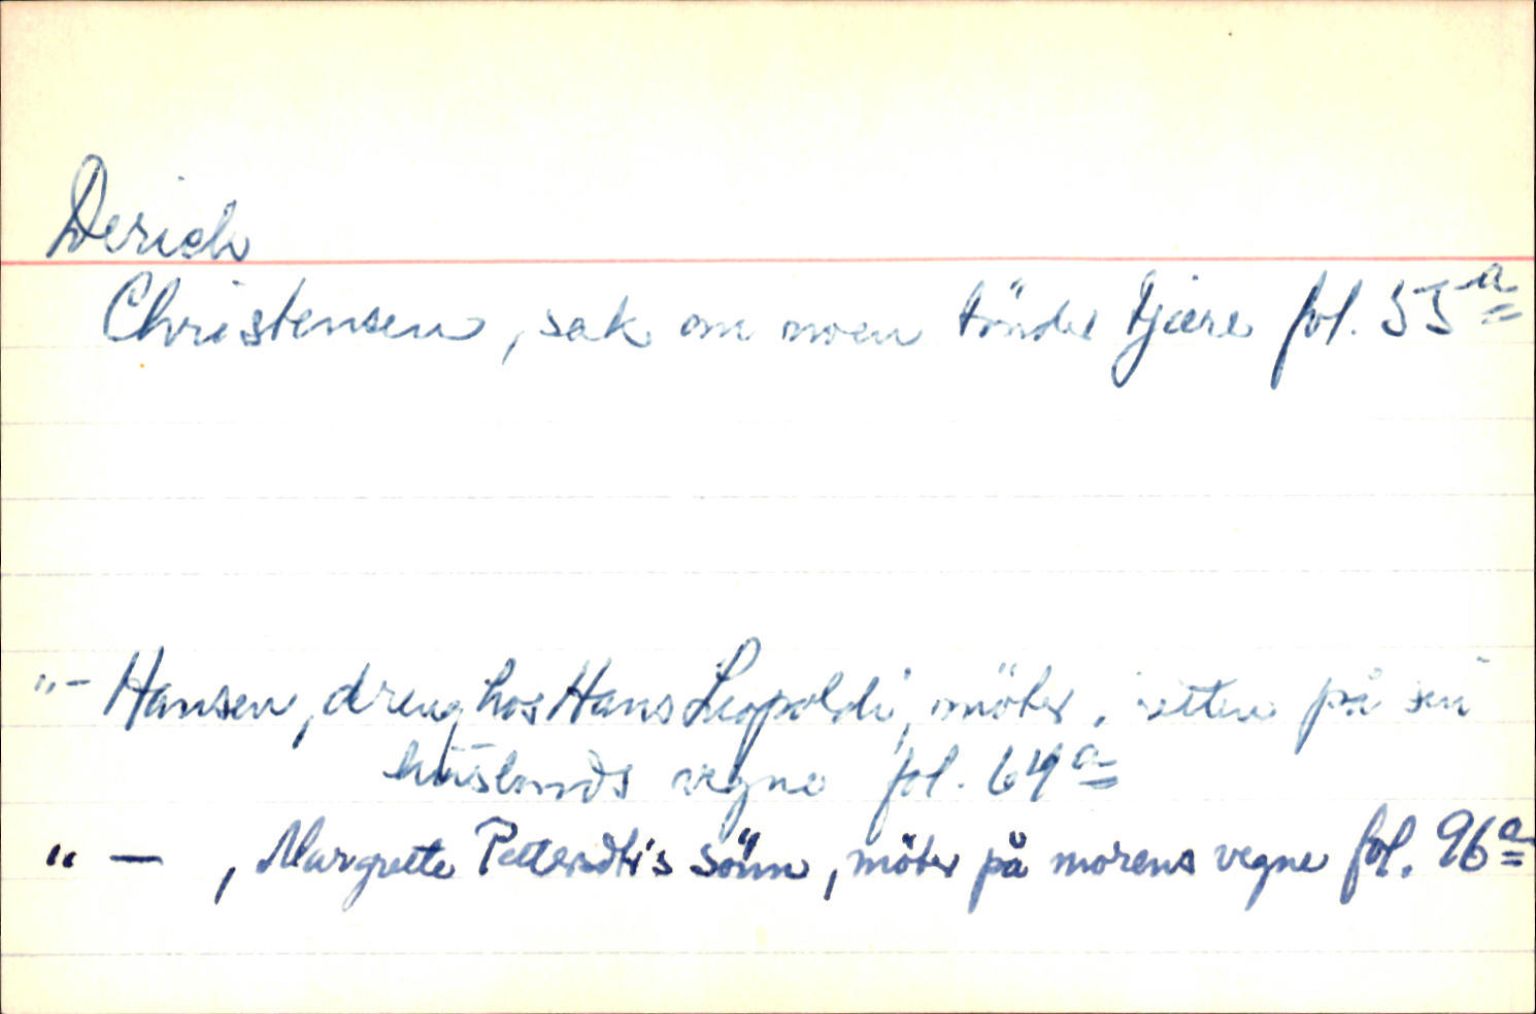 Derich
Christensen, sak om noen tönder tjære fol. 55a
"- Hansen, dreng hos Hans Leopoldi, möter i retten på sin
húsbonds vegne fol. 64a
" — , Margrette Pettersdtr's sönn, möter på morens vegne fol. 96a